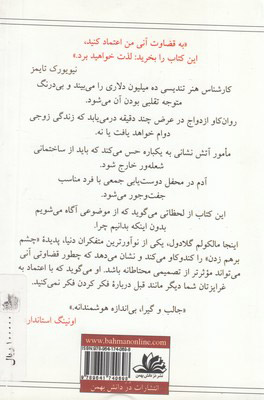 «به قضاوت آنی من اعتماد کنید،
این کتاب را بخرید: لذت خواهید برد.»
نیویورک تایمز
کارشناس هنر تندیسی ده میلیون دلاری را می‌بیند و بی‌درنگ
متوجه تقلبی بودن آن می‌شود.
روان‌کاو ازدواج در عرض چند دقیقه درمی‌یابد که زندگی زوجی
دوام خواهد یافت یا نه.
مأمور آتش نشانی به یکباره حس می‌کند که باید از ساختمانی
شعله‌ور خارج شود.
آدم در محفل دوست‌یابی جمعی با فرد مناسب
جفت‌وجور می‌شود.
این کتاب از لحظاتی می‌گوید که از موضوعی آگاه می‌شویم
بدون اینکه بدانیم چرا.
اینجا مالکولم گلادول، یکی از نوآورترین متفکران دنیا، پدیدهٔ «چشم
برهم زدن» را کندوکاو می‌کند و نشان می‌دهد که چطور قضاوتی آنی
می‌تواند مؤثرتر از تصمیمی محتاطانه باشد. او می‌گوید که با اعتماد به
غرایزتان شما دیگر مانند قبل دربارهٔ فکر کردن فکر نمی‌کنید.
«جالب و گیرا، بی‌اندازه هوشمندانه.»
اونینگ استاندارد
۱۰۰۰۰۰ ریال
www.bahmanonline.com
نشر دانش بهمن
انتشارات در دانش بهمن